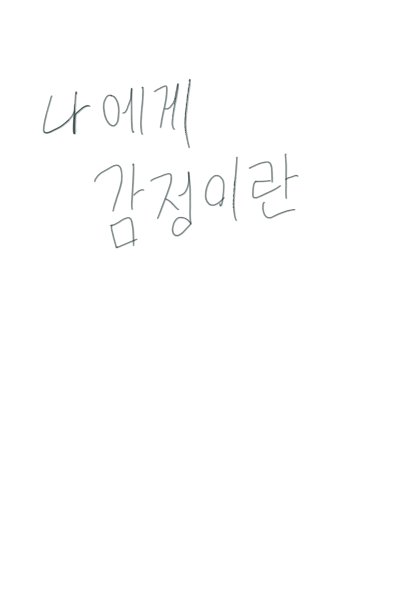 나에게
감정이란